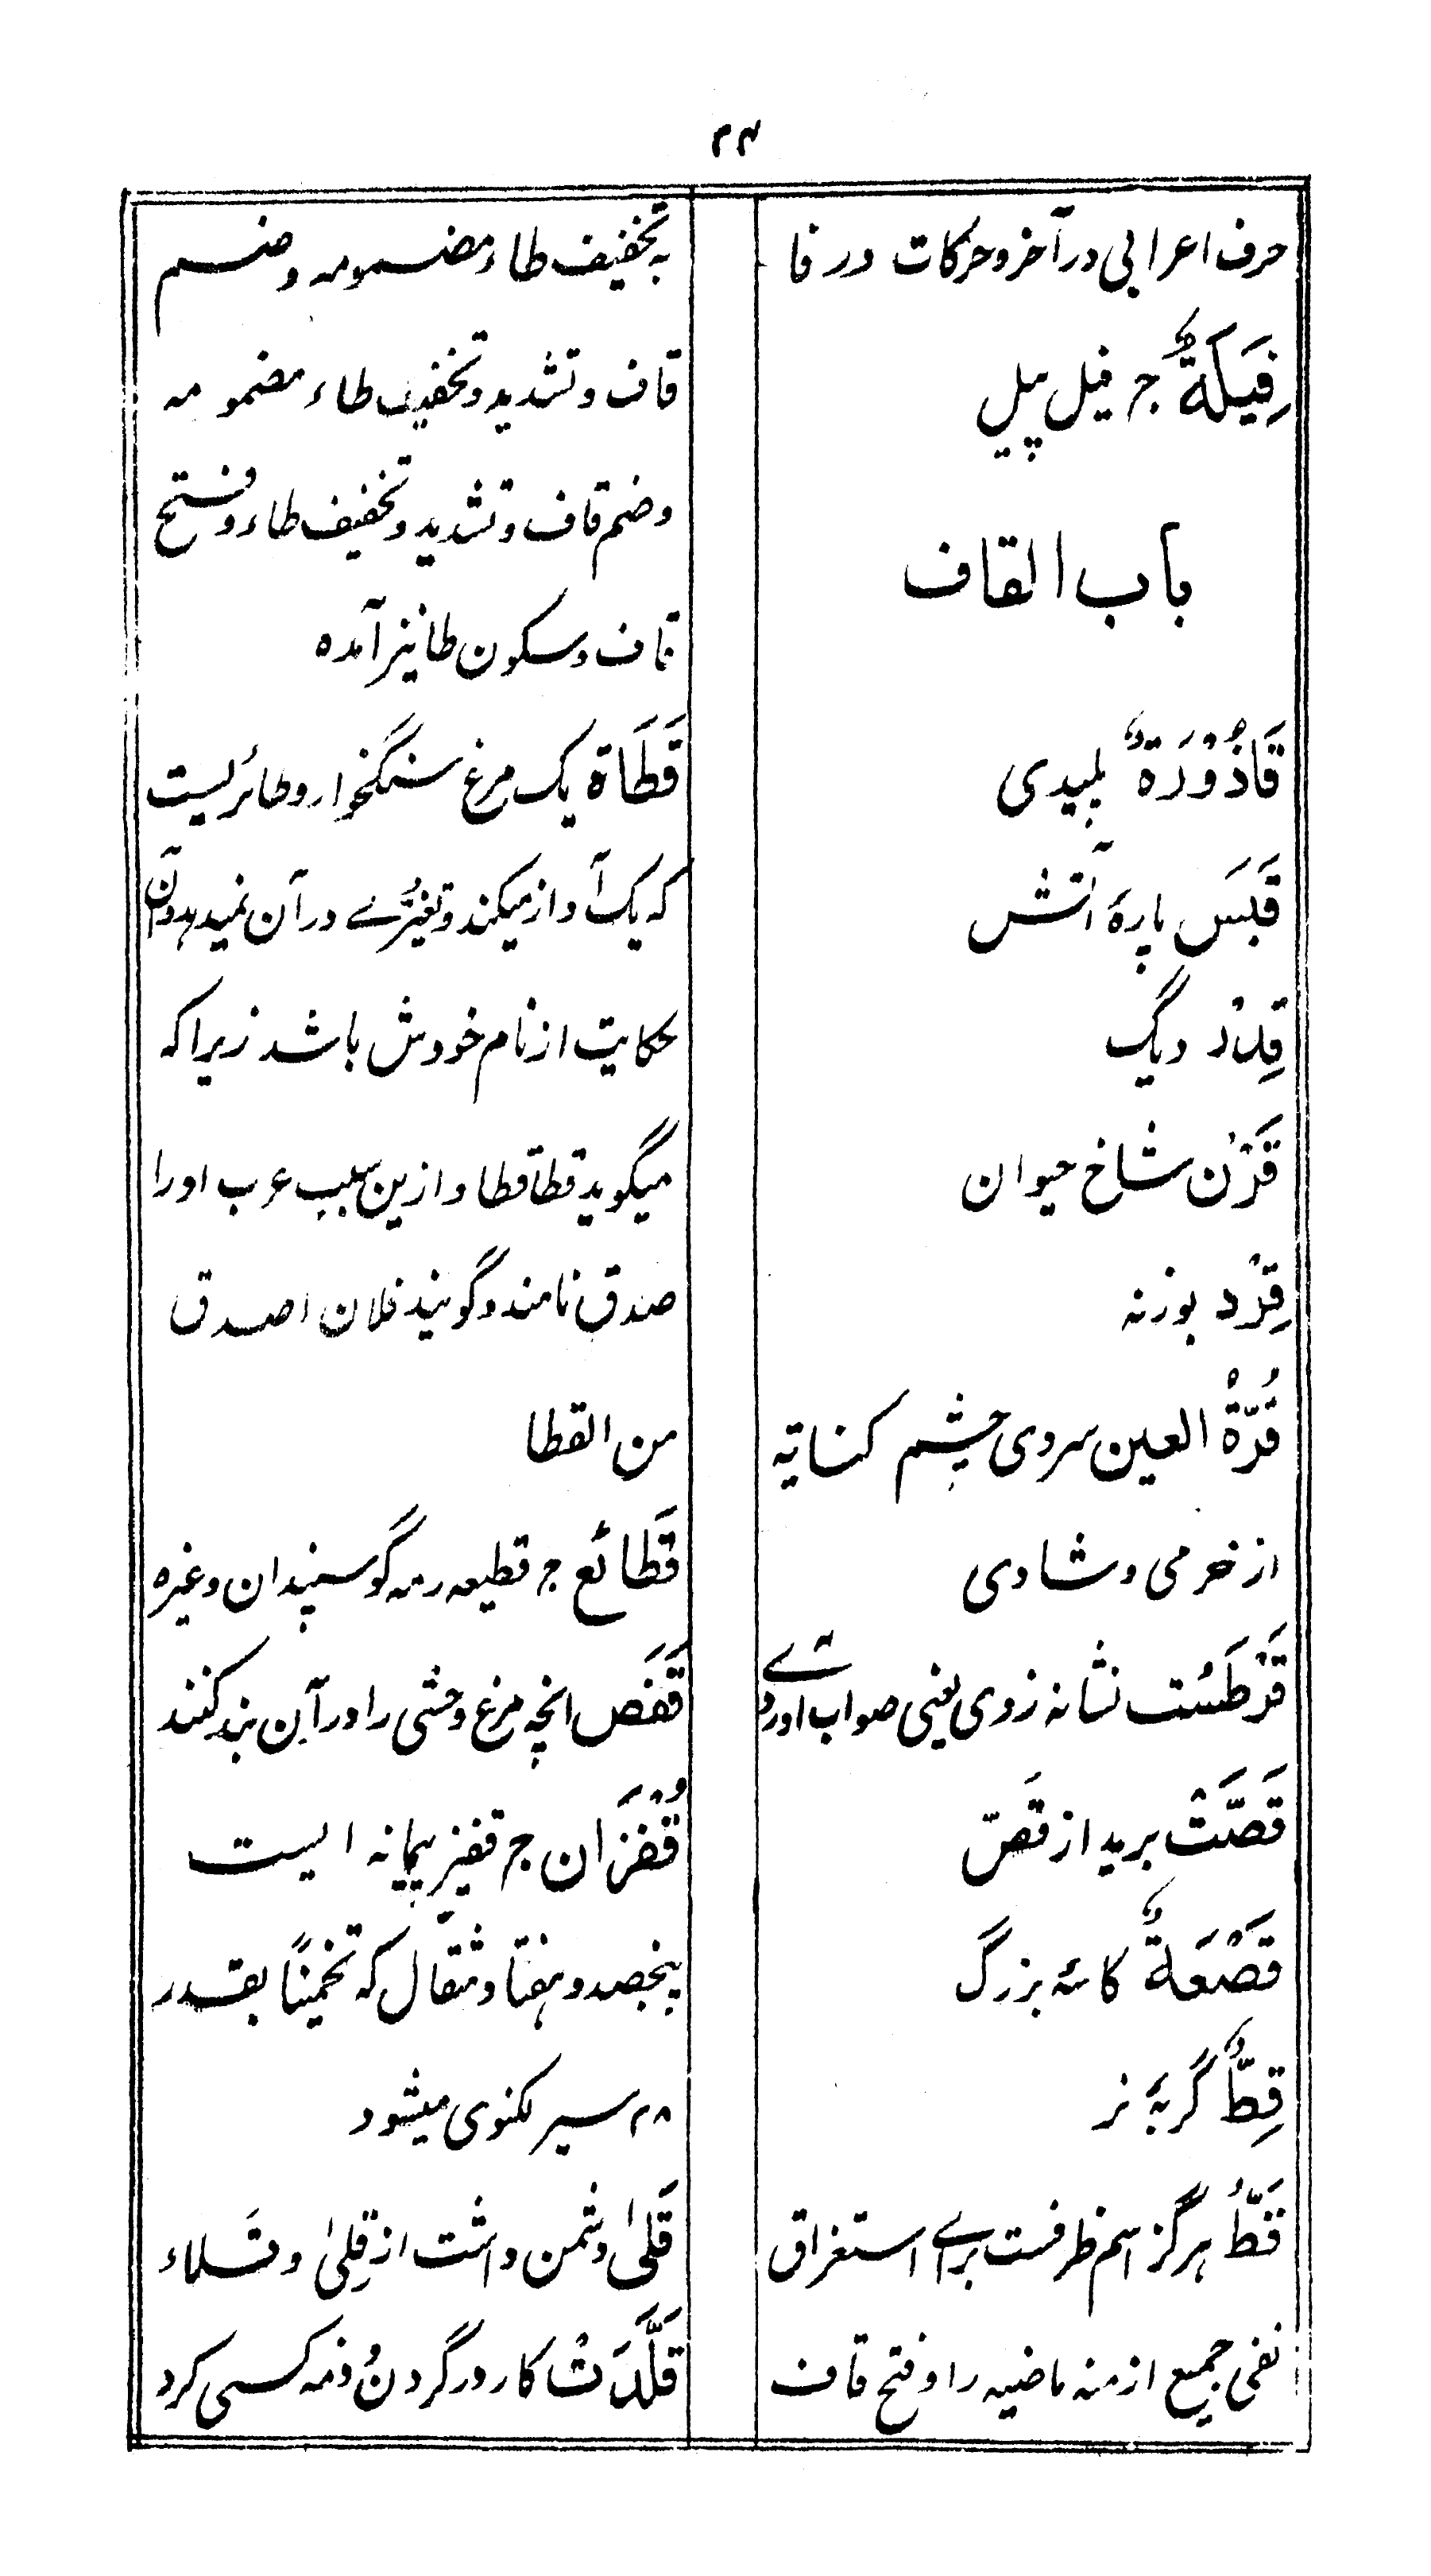 ۳۴
حرف اعرابی در آخر و حرکات در فا
فِیَلَةٌ ج فیل پیل
باب القاف
قَاذُوْرَةٌ پلیدی
قَبَسَ پارۂ آتش
قِدْر دیگ
قَرْن شاخ حیوان
قِرْد بوزنه
قُرَّةُ العین سردی چشم کنایة
از خرمی و شادی
قَرْطَسْتَ نشانه زدی یعنی صواب آوردے
قَصَّتْ برید از قَصّ
قَصْعَةٌ کاسۂ بزرگ
قِطٌّ گربۂ نر
قَطُّ هرگز اسم ظرفست برای استغراق
نفی جمیع ازمنه ماضیه را و فتح قاف
به تخفیف طاء مضمومه و ضم
قاف و تشدید و تخفیف طاء مضمومه
و ضم قاف و تشدید و تخفیف طاء و فتح
قاف و سکون طا نیز آمده
قَطَاة یک مرغ سنگخوار و طائریست
که یک آواز میکند و تغیّرے در آن نمیدهد و آن
حکایت از نام خودش باشد زیرا که
میگوید قطا قطا و ازین سبب عرب او را
صدق نامند و گویند فلان اصدق
من القطا
قَطائع ج قطیعه رمه گوسپندان و غیره
قَفَص انچه مرغ وحشی را در آن بند کنند
قُفْزَان ج قفیز پیمانه ایست
پنجصد و هفتاد مثقال که تخمینًا بقدر
۲۸ سیر لکنوی میشود
قَلیٰ دشمن داشت از قِلیٰ و قَلاء
قَلَّدَتْ کار در گردن و ذمه کسی کرد